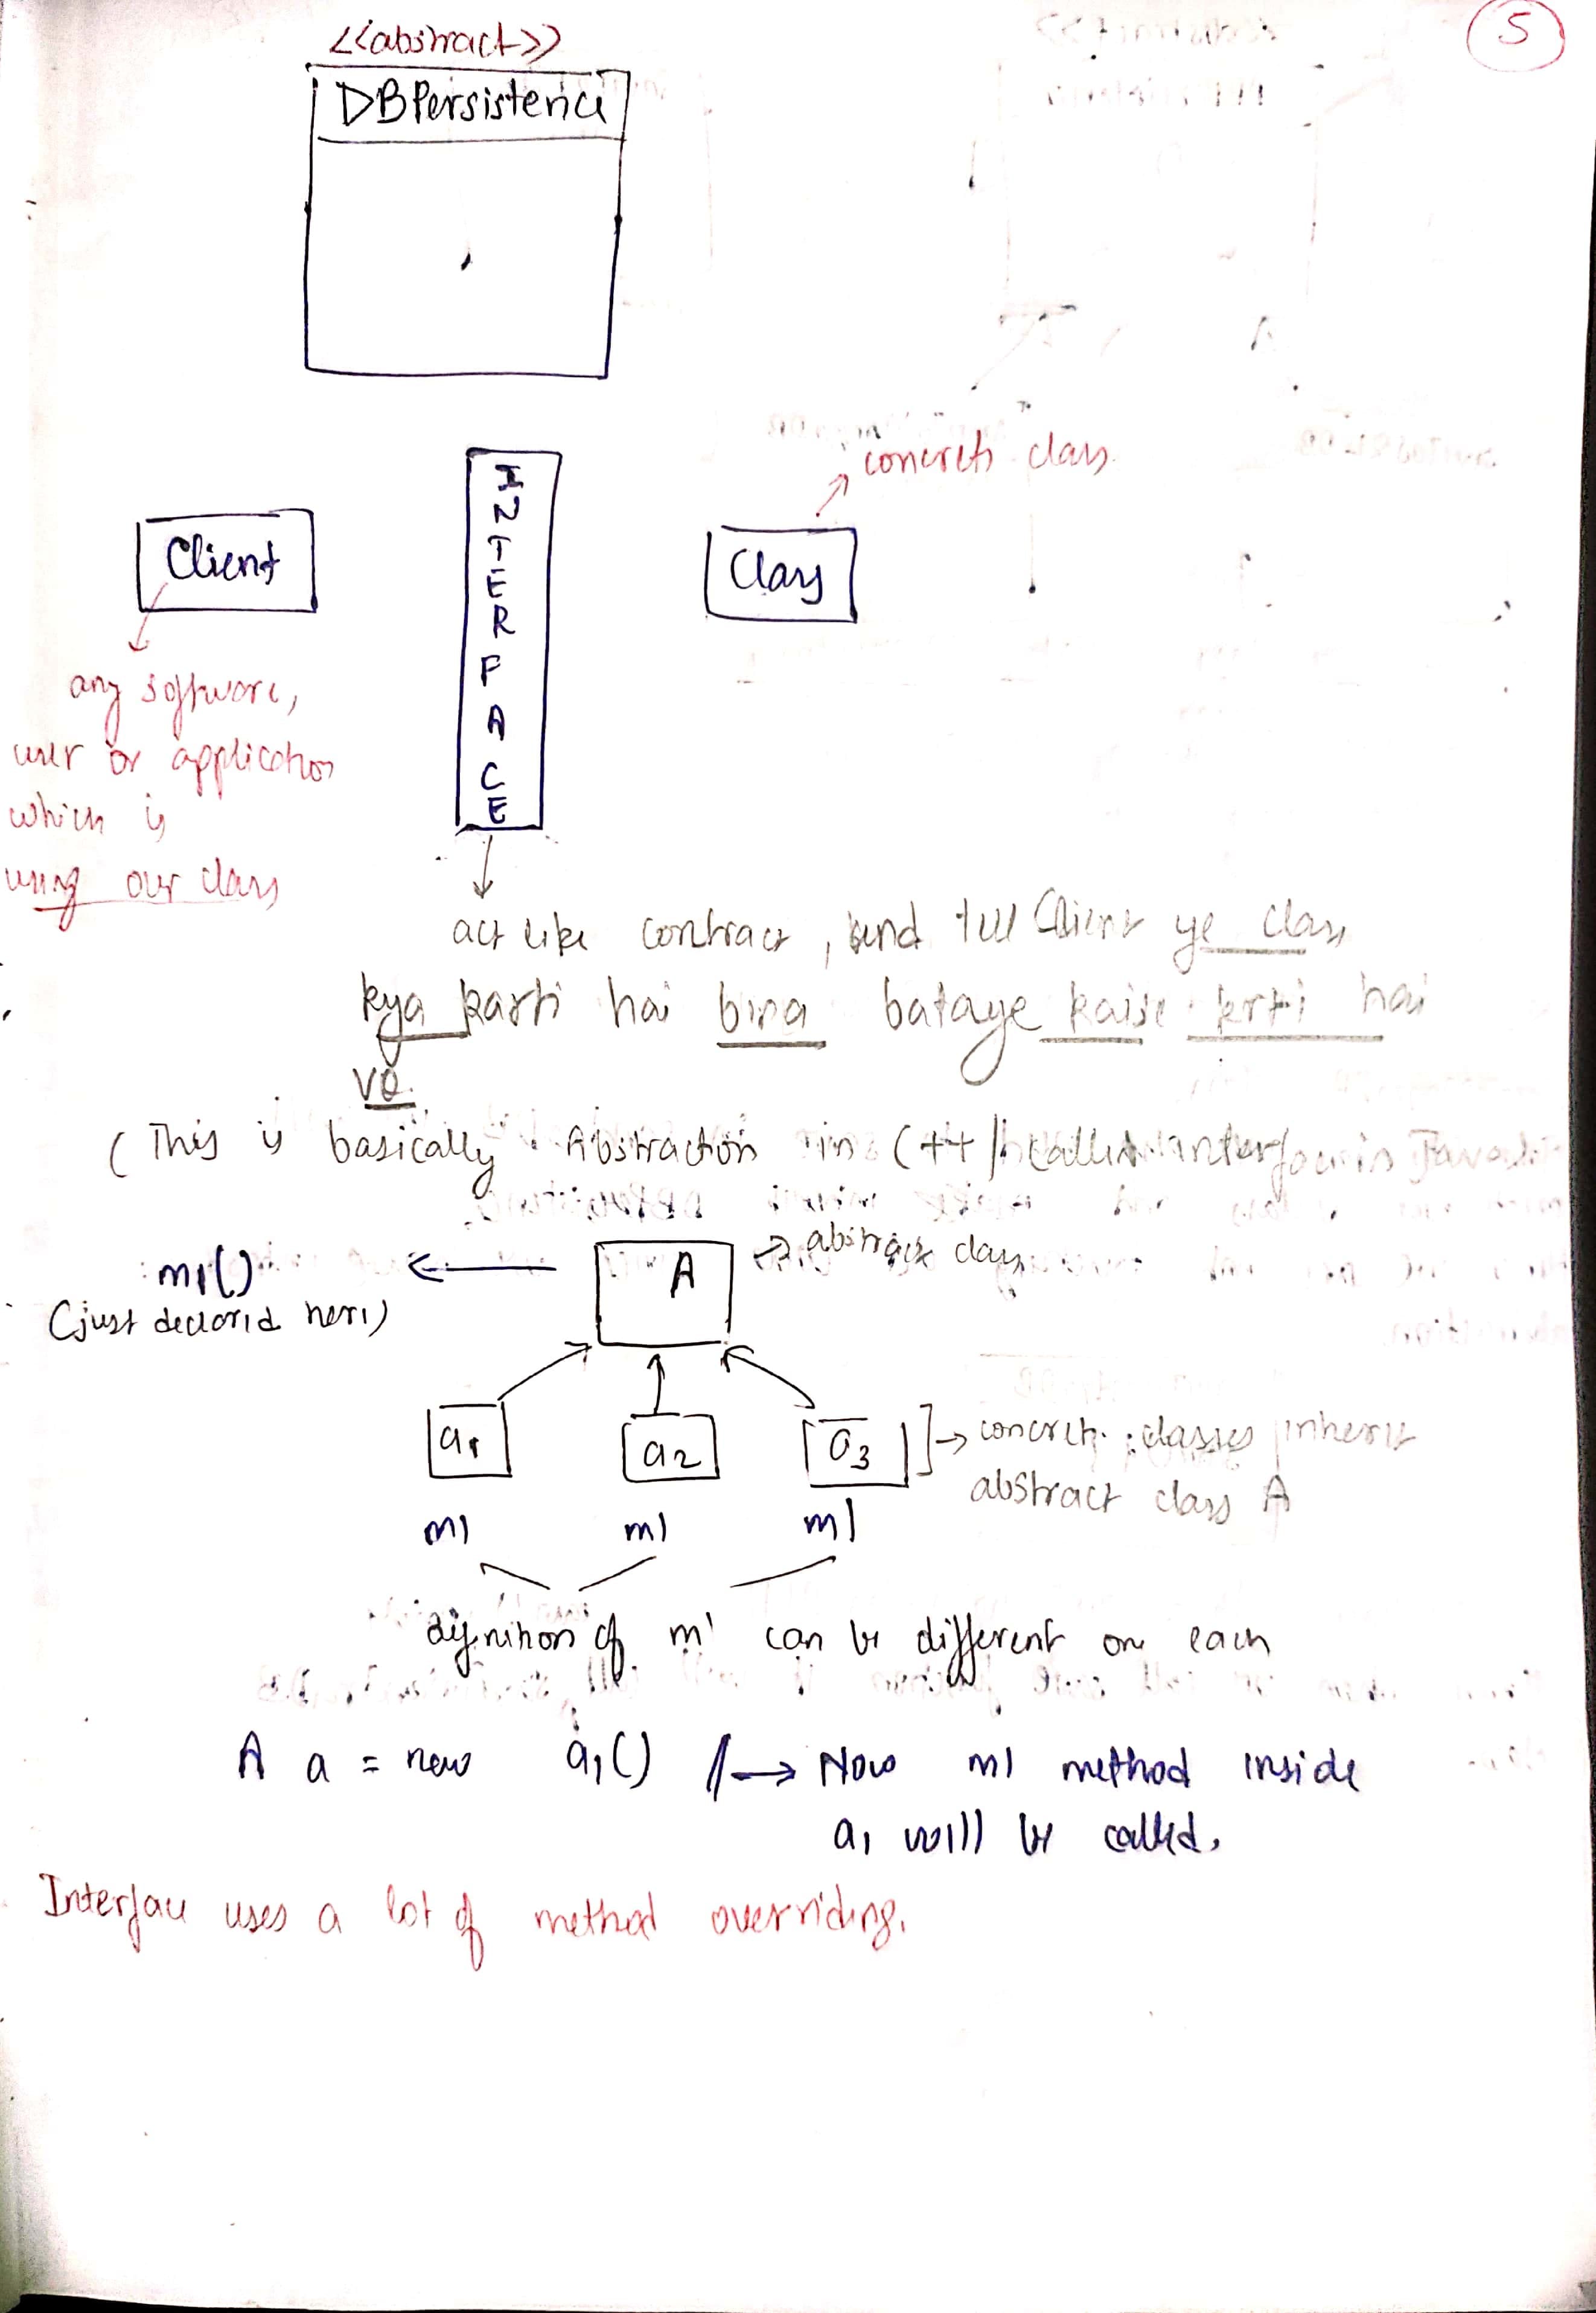 5
<<abstract>>
DBPersistence
concrete class
INTERFACE
Client
Class
any software,
user or application
which is
using our class
act like contract, and tell Client ye class
kya karti hai bina bataye kaise krti hai
vo.
(This is basically Abstraction in C++ // called interface in Java
m1()
(just declared here)
A
abstract class
a1
a2
a3
concrete classes inherit
abstract class A
m1 m1 m1
definition of m1 can be different on each
A a = new a1() // → Now m1 method inside
a1 will be called.
Interface uses a lot of method overriding.